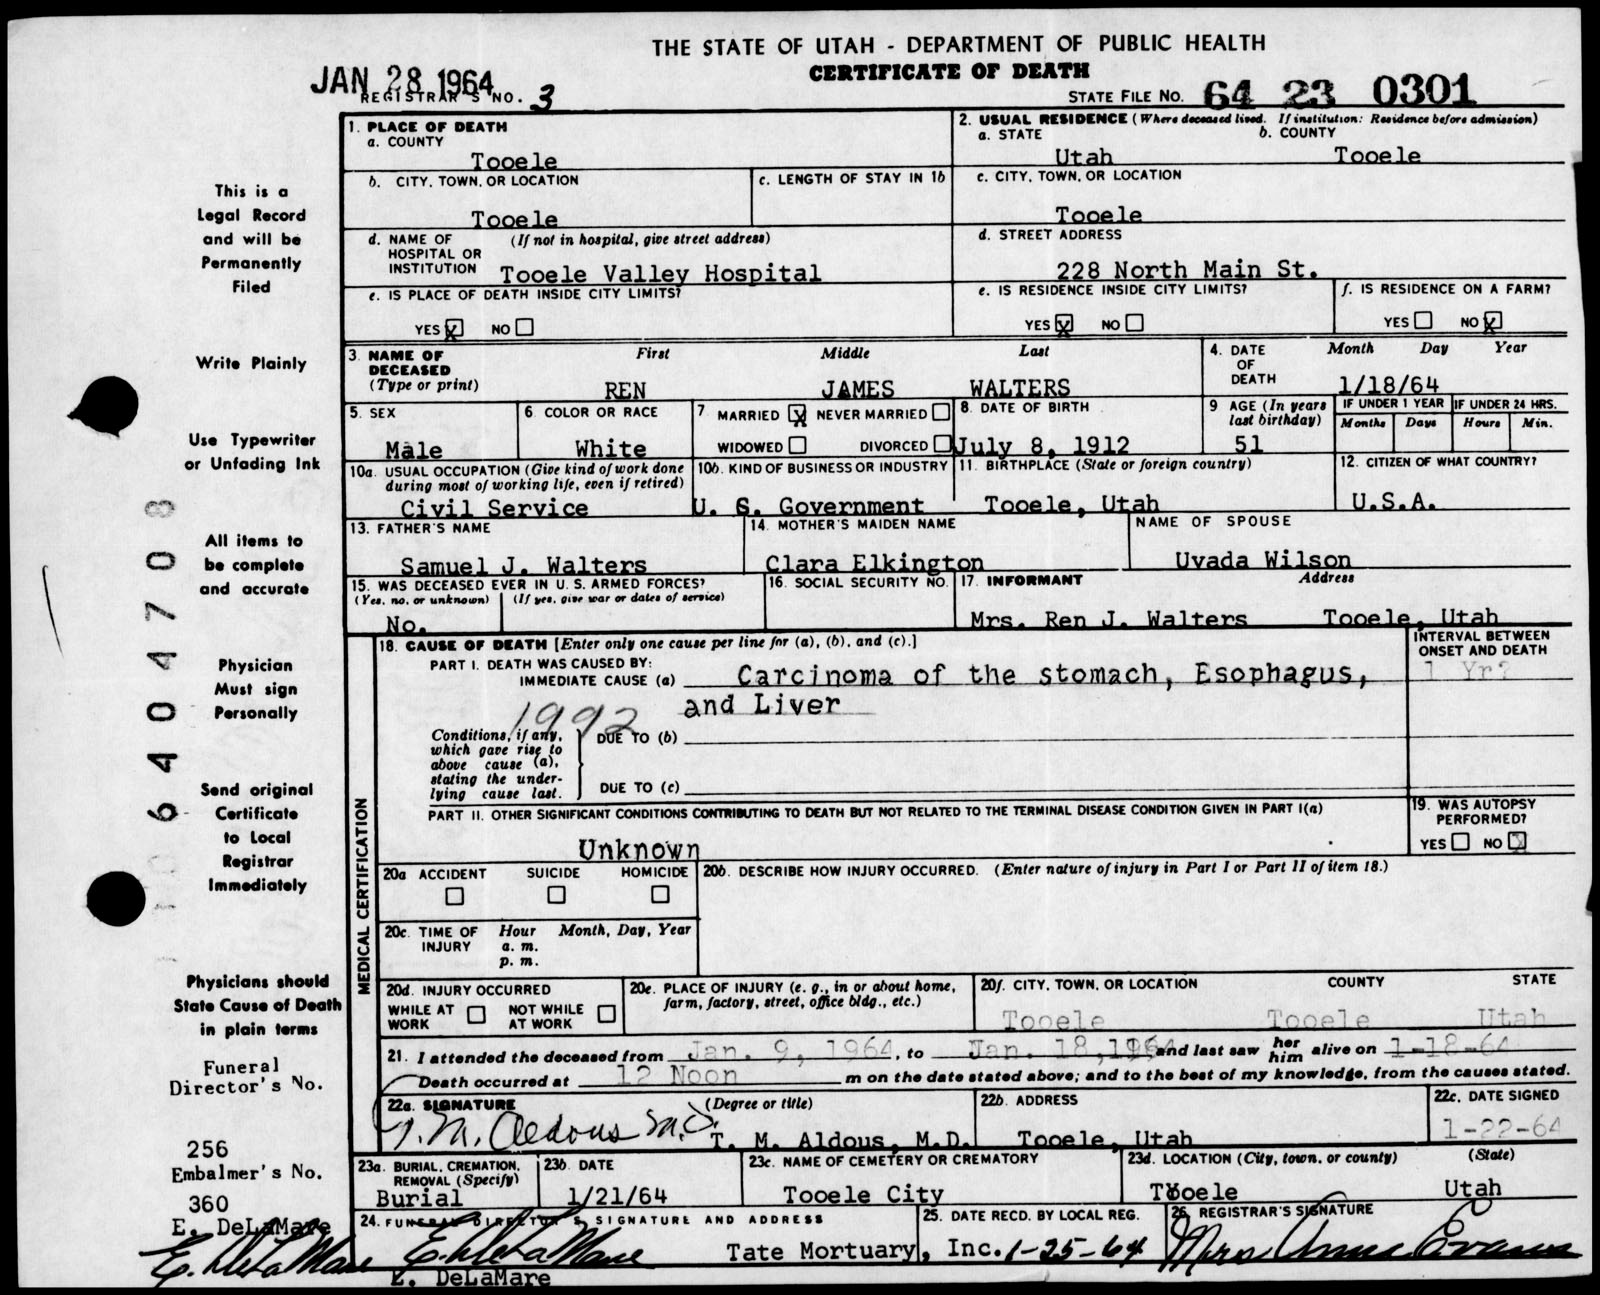 THE STATE OF UTAH - DEPARTMENT OF PUBLIC HEALTH
CERTIFICATE OF DEATH
JAN 28 1964
REGISTRAR'S NO. 3
STATE FILE NO. 64 23 0301
This is a
Legal Record
and will be
Permanently
Filed
Write Plainly
Use Typewriter
or Unfading Ink
All items to
be complete
and accurate
Physician
Must sign
Personally
Send original
Certificate
to Local
Registrar
Immediately
Physicians should
State Cause of Death
in plain terms
Funeral
Director's No.
256
Embalmer's No.
360
E. DeLaMare
E. DeLaMare
6404708
1. PLACE OF DEATH
a. COUNTY
Tooele
2. USUAL RESIDENCE (Where deceased lived. If institution: Residence before admission)
a. STATE b. COUNTY
Utah Tooele
b. CITY, TOWN, OR LOCATION
Tooele
c. LENGTH OF STAY IN 1b
c. CITY, TOWN, OR LOCATION
Tooele
d. NAME OF (If not in hospital, give street address)
HOSPITAL OR
INSTITUTION Tooele Valley Hospital
d. STREET ADDRESS
228 North Main St.
e. IS PLACE OF DEATH INSIDE CITY LIMITS?
YES X NO
e. IS RESIDENCE INSIDE CITY LIMITS?
YES X NO
f. IS RESIDENCE ON A FARM?
YES NO X
3. NAME OF DECEASED (Type or print)
First Middle Last
REN JAMES WALTERS
4. DATE OF DEATH
Month Day Year
1/18/64
5. SEX
Male
6. COLOR OR RACE
White
7 MARRIED X NEVER MARRIED
WIDOWED DIVORCED
8. DATE OF BIRTH
July 8, 1912
9 AGE (In years last birthday)
51
IF UNDER 1 YEAR IF UNDER 24 HRS.
Months Days Hours Min.
10a. USUAL OCCUPATION (Give kind of work done during most of working life, even if retired)
Civil Service
10b. KIND OF BUSINESS OR INDUSTRY
U. S. Government
11. BIRTHPLACE (State or foreign country)
Tooele, Utah
12. CITIZEN OF WHAT COUNTRY?
U.S.A.
13. FATHER'S NAME
Samuel J. Walters
14. MOTHER'S MAIDEN NAME
Clara Elkington
NAME OF SPOUSE
Uvada Wilson
15. WAS DECEASED EVER IN U. S. ARMED FORCES?
(Yes, no, or unknown) (If yes, give war or dates of service)
No.
16. SOCIAL SECURITY NO.
17. INFORMANT Address
Mrs. Ren J. Walters Tooele, Utah
MEDICAL CERTIFICATION
18. CAUSE OF DEATH [Enter only one cause per line for (a), (b), and (c).]
PART I. DEATH WAS CAUSED BY:
IMMEDIATE CAUSE (a) Carcinoma of the stomach, Esophagus,
and Liver
1992
INTERVAL BETWEEN
ONSET AND DEATH
1 Yr?
Conditions, if any,
which gave rise to
above cause (a),
stating the under-
lying cause last.
DUE TO (b)
DUE TO (c)
PART II. OTHER SIGNIFICANT CONDITIONS CONTRIBUTING TO DEATH BUT NOT RELATED TO THE TERMINAL DISEASE CONDITION GIVEN IN PART I(a)
Unknown
19. WAS AUTOPSY
PERFORMED?
YES NO X
20a ACCIDENT SUICIDE HOMICIDE
20b. DESCRIBE HOW INJURY OCCURRED. (Enter nature of injury in Part I or Part II of item 18.)
20c. TIME OF INJURY Hour Month, Day, Year
a. m.
p. m.
20d. INJURY OCCURRED
WHILE AT WORK NOT WHILE AT WORK
20e. PLACE OF INJURY (e. g., in or about home,
farm, factory, street, office bldg., etc.)
20f. CITY, TOWN, OR LOCATION COUNTY STATE
Tooele Tooele Utah
21. I attended the deceased from Jan. 9, 1964, to Jan. 18, 1964 and last saw her him alive on 1-18-64
Death occurred at 12 Noon m on the date stated above; and to the best of my knowledge, from the causes stated.
22a. SIGNATURE (Degree or title)
T. M. Aldous M.D. T. M. Aldous, M.D.
22b. ADDRESS
Tooele, Utah
22c. DATE SIGNED
1-22-64
23a. BURIAL, CREMATION, REMOVAL (Specify)
Burial
23b. DATE
1/21/64
23c. NAME OF CEMETERY OR CREMATORY
Tooele City
23d. LOCATION (City, town, or county) (State)
Tooele Utah
24. FUNERAL DIRECTOR'S SIGNATURE AND ADDRESS
E. DeLaMare Tate Mortuary, Inc.
E. DeLaMare
25. DATE RECD. BY LOCAL REG.
1-25-64
26. REGISTRAR'S SIGNATURE
Mrs Anna Evans